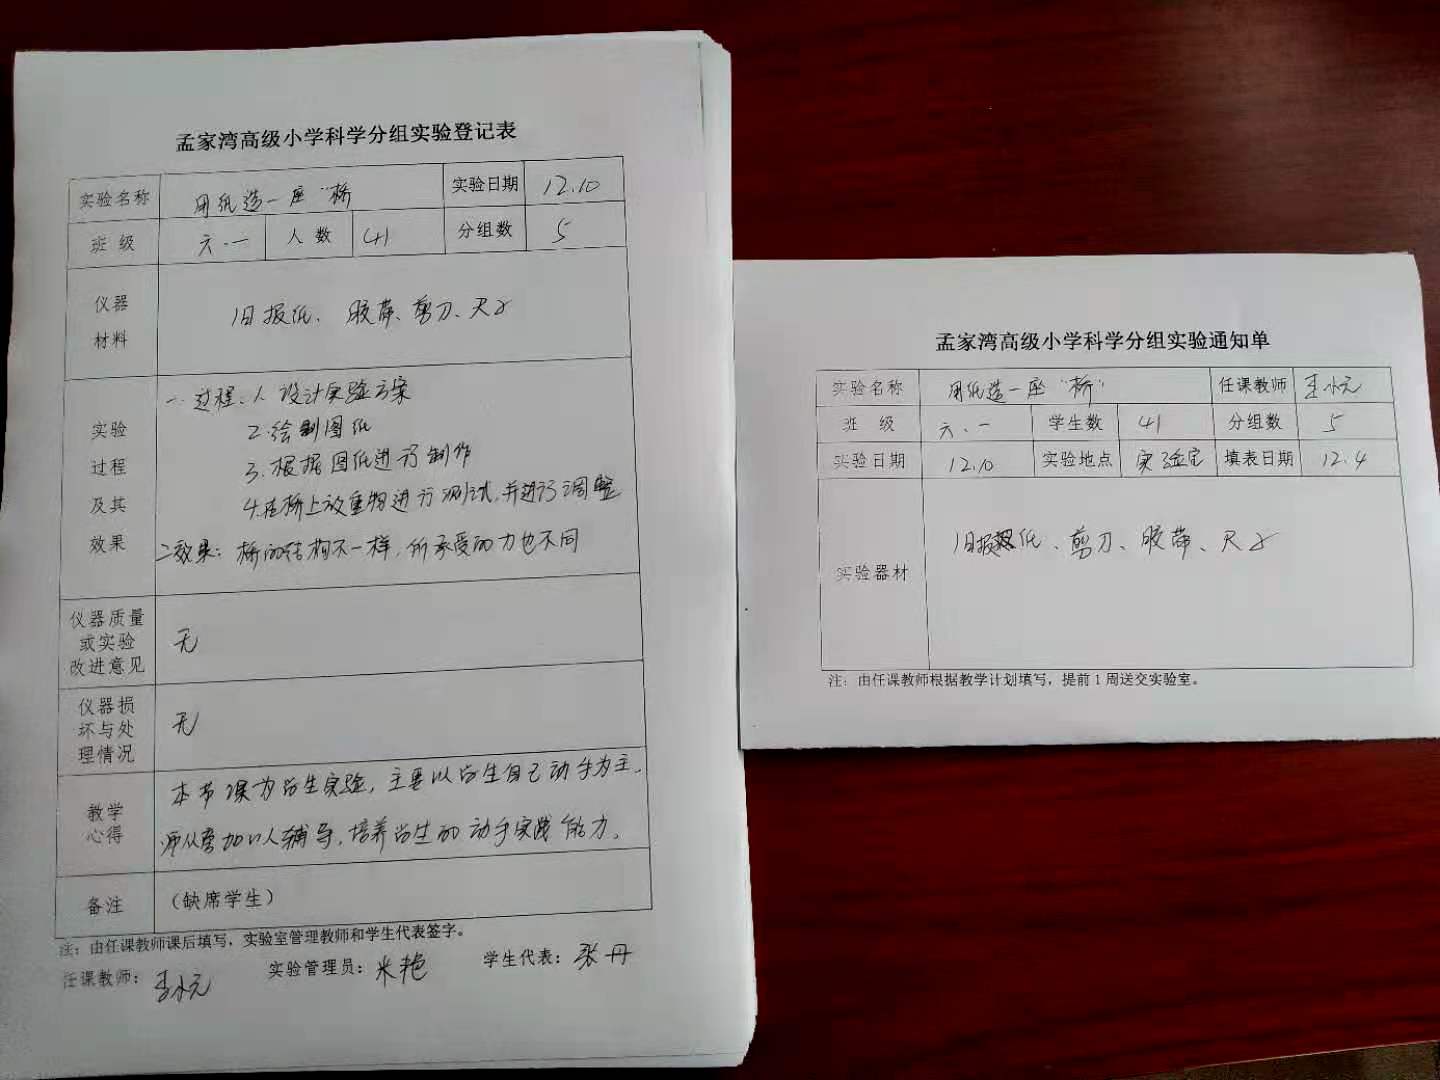 孟家湾高级小学科学分组实验登记表
实验名称 用纸造一座“桥 实验日期 12.10
班级 六.一 人数 41 分组数 5
仪器
材料
旧报纸、胶带、剪刀、尺子
实验
过程
及其
效果
一.过程:1.设计实验方案
2.绘制图纸
3.根据图纸进行制作
4.在桥上放重物进行测试,并进行调整
二效果:桥的结构不一样,所承受的力也不同
仪器质量
或实验
改进意见
无
仪器损
坏与处
理情况
无
教学
心得
本节课为学生实验,主要以学生自己动手为主.
师从旁加以人辅导,培养学生的动手实践能力.
备注 (缺席学生)
注:由任课教师课后填写,实验室管理教师和学生代表签字。
任课教师: 实验管理员:米艳 学生代表:张丹
孟家湾高级小学科学分组实验通知单
实验名称 用纸造一座“桥” 任课教师
班 级 六.一 学生数 41 分组数 5
实验日期 12.10 实验地点 实验室 填表日期 12.4
实验器材
旧报纸、剪刀、胶带、尺子
注:由任课教师根据教学计划填写,提前1周送交实验室。